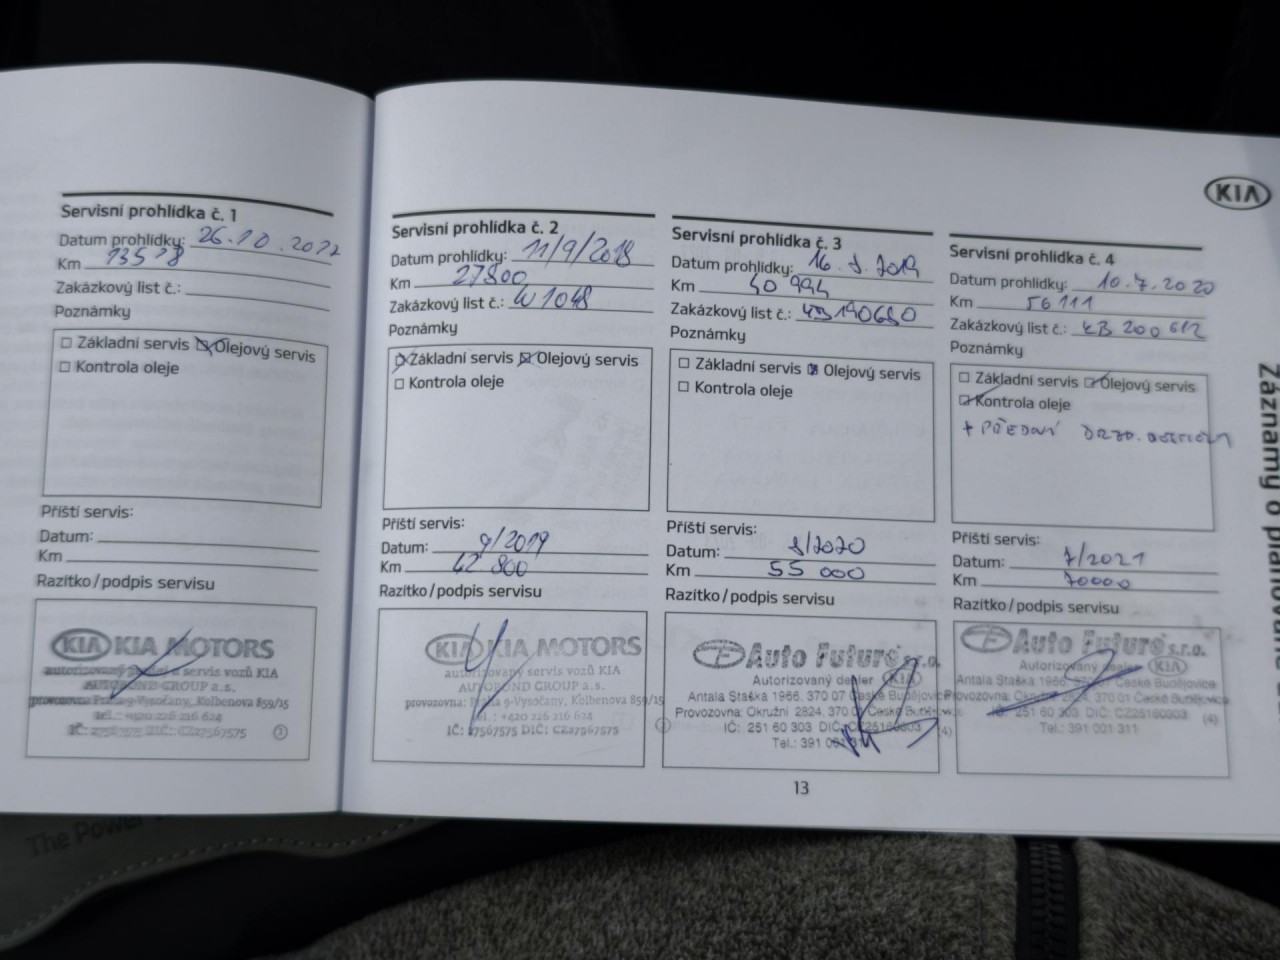 KIA
Servisní prohlídka č. 1
Datum prohlídky: 26.10.2017
Km 13578
Zakázkový list č.:
Poznámky
Základní servis Olejový servis
Kontrola oleje
Příští servis:
Datum:
Km
Razítko/podpis servisu
KIA KIA MOTORS
autorizovaný prodej a servis vozů KIA
AUTOPOND GROUP a.s.
provozovna: Praha 9-Vysočany, Kolbenova 859/15
tel.: +420 226 216 624
IČ: 27567575 DIČ: CZ27567575
Servisní prohlídka č. 2
Datum prohlídky: 11/9/2018
Km 27800
Zakázkový list č.: W1048
Poznámky
Základní servis Olejový servis
Kontrola oleje
Příští servis:
Datum: 9/2019
Km 42 800
Razítko/podpis servisu
KIA KIA MOTORS
autorizovaný servis vozů KIA
AUTOPOND GROUP a.s.
provozovna: Praha 9-Vysočany, Kolbenova 859/15
tel.: +420 226 216 624
IČ: 27567575 DIČ: CZ27567575
Servisní prohlídka č. 3
Datum prohlídky: 16. 8. 2019
Km 40 994
Zakázkový list č.: KB190680
Poznámky
Základní servis Olejový servis
Kontrola oleje
Příští servis:
Datum: 8/2020
Km 55 000
Razítko/podpis servisu
Auto Future s.r.o.
Autorizovaný dealer KIA
Antala Staška 1966, 370 07 České Budějovice
Provozovna: Okružní 2824, 370 01 České Budějovice
IČ: 251 60 303 DIČ: CZ25160303 (4)
Tel.: 391 001 311
Servisní prohlídka č. 4
Datum prohlídky: 10.7.2020
Km 56111
Zakázkový list č.: KB 200612
Poznámky
Základní servis Olejový servis
Kontrola oleje
+ PŘEDNÍ
Příští servis:
Datum: 7/2021
Km 70000
Razítko/podpis servisu
Auto Future s.r.o.
Autorizovaný dealer KIA
Antala Staška 1966, 370 07 České Budějovice
Provozovna: Okružní 2824, 370 01 České Budějovice
IČ: 251 60 303 DIČ: CZ25160303 (4)
Tel.: 391 001 311
13
The Power